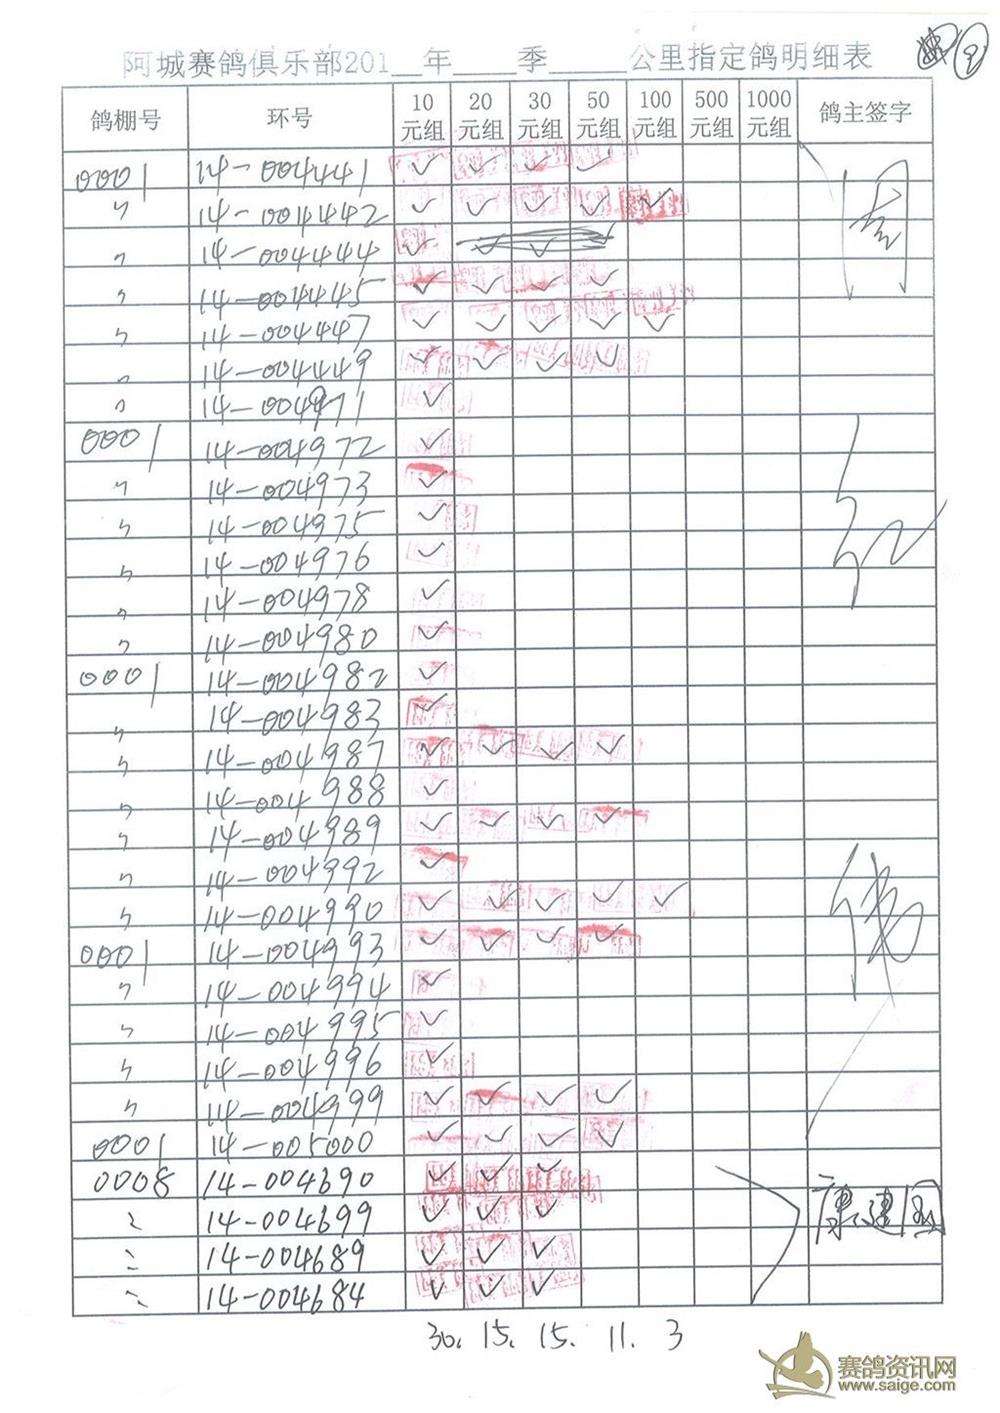 阿城赛鸽俱乐部201__年____季_____公里指定鸽明细表
鸽棚号 环号 10元组 20元组 30元组 50元组 100元组 500元组 1000元组 鸽主签字
0001 14-004441 ✓ ✓ ✓ ✓
〃 14-004442 ✓ ✓ ✓ ✓ ✓
〃 14-004444 ✓
〃 14-004445 ✓ ✓ ✓ ✓
〃 14-004447 ✓ ✓ ✓ ✓ ✓
〃 14-004449 ✓ ✓ ✓ ✓
〃 14-004971 ✓
0001 14-004972 ✓
〃 14-004973 ✓
〃 14-004975 ✓
〃 14-004976 ✓
〃 14-004978 ✓
〃 14-004980 ✓
0001 14-004982 ✓
〃 14-004983 ✓
〃 14-004987 ✓ ✓ ✓ ✓
〃 14-004988 ✓
〃 14-004989 ✓ ✓ ✓ ✓
〃 14-004992 ✓
〃 14-004990 ✓ ✓ ✓ ✓ ✓
0001 14-004993 ✓ ✓ ✓ ✓
〃 14-004994 ✓
〃 14-004995 ✓
〃 14-004996 ✓
〃 14-004999 ✓ ✓ ✓ ✓
0001 14-005000 ✓ ✓ ✓ ✓
0008 14-004690 ✓ ✓ ✓ 康建国
〃 14-004699 ✓ ✓ ✓
〃 14-004689 ✓ ✓ ✓
〃 14-004684 ✓ ✓ ✓
30. 15. 15. 11. 3
赛鸽资讯网
www.saige.com